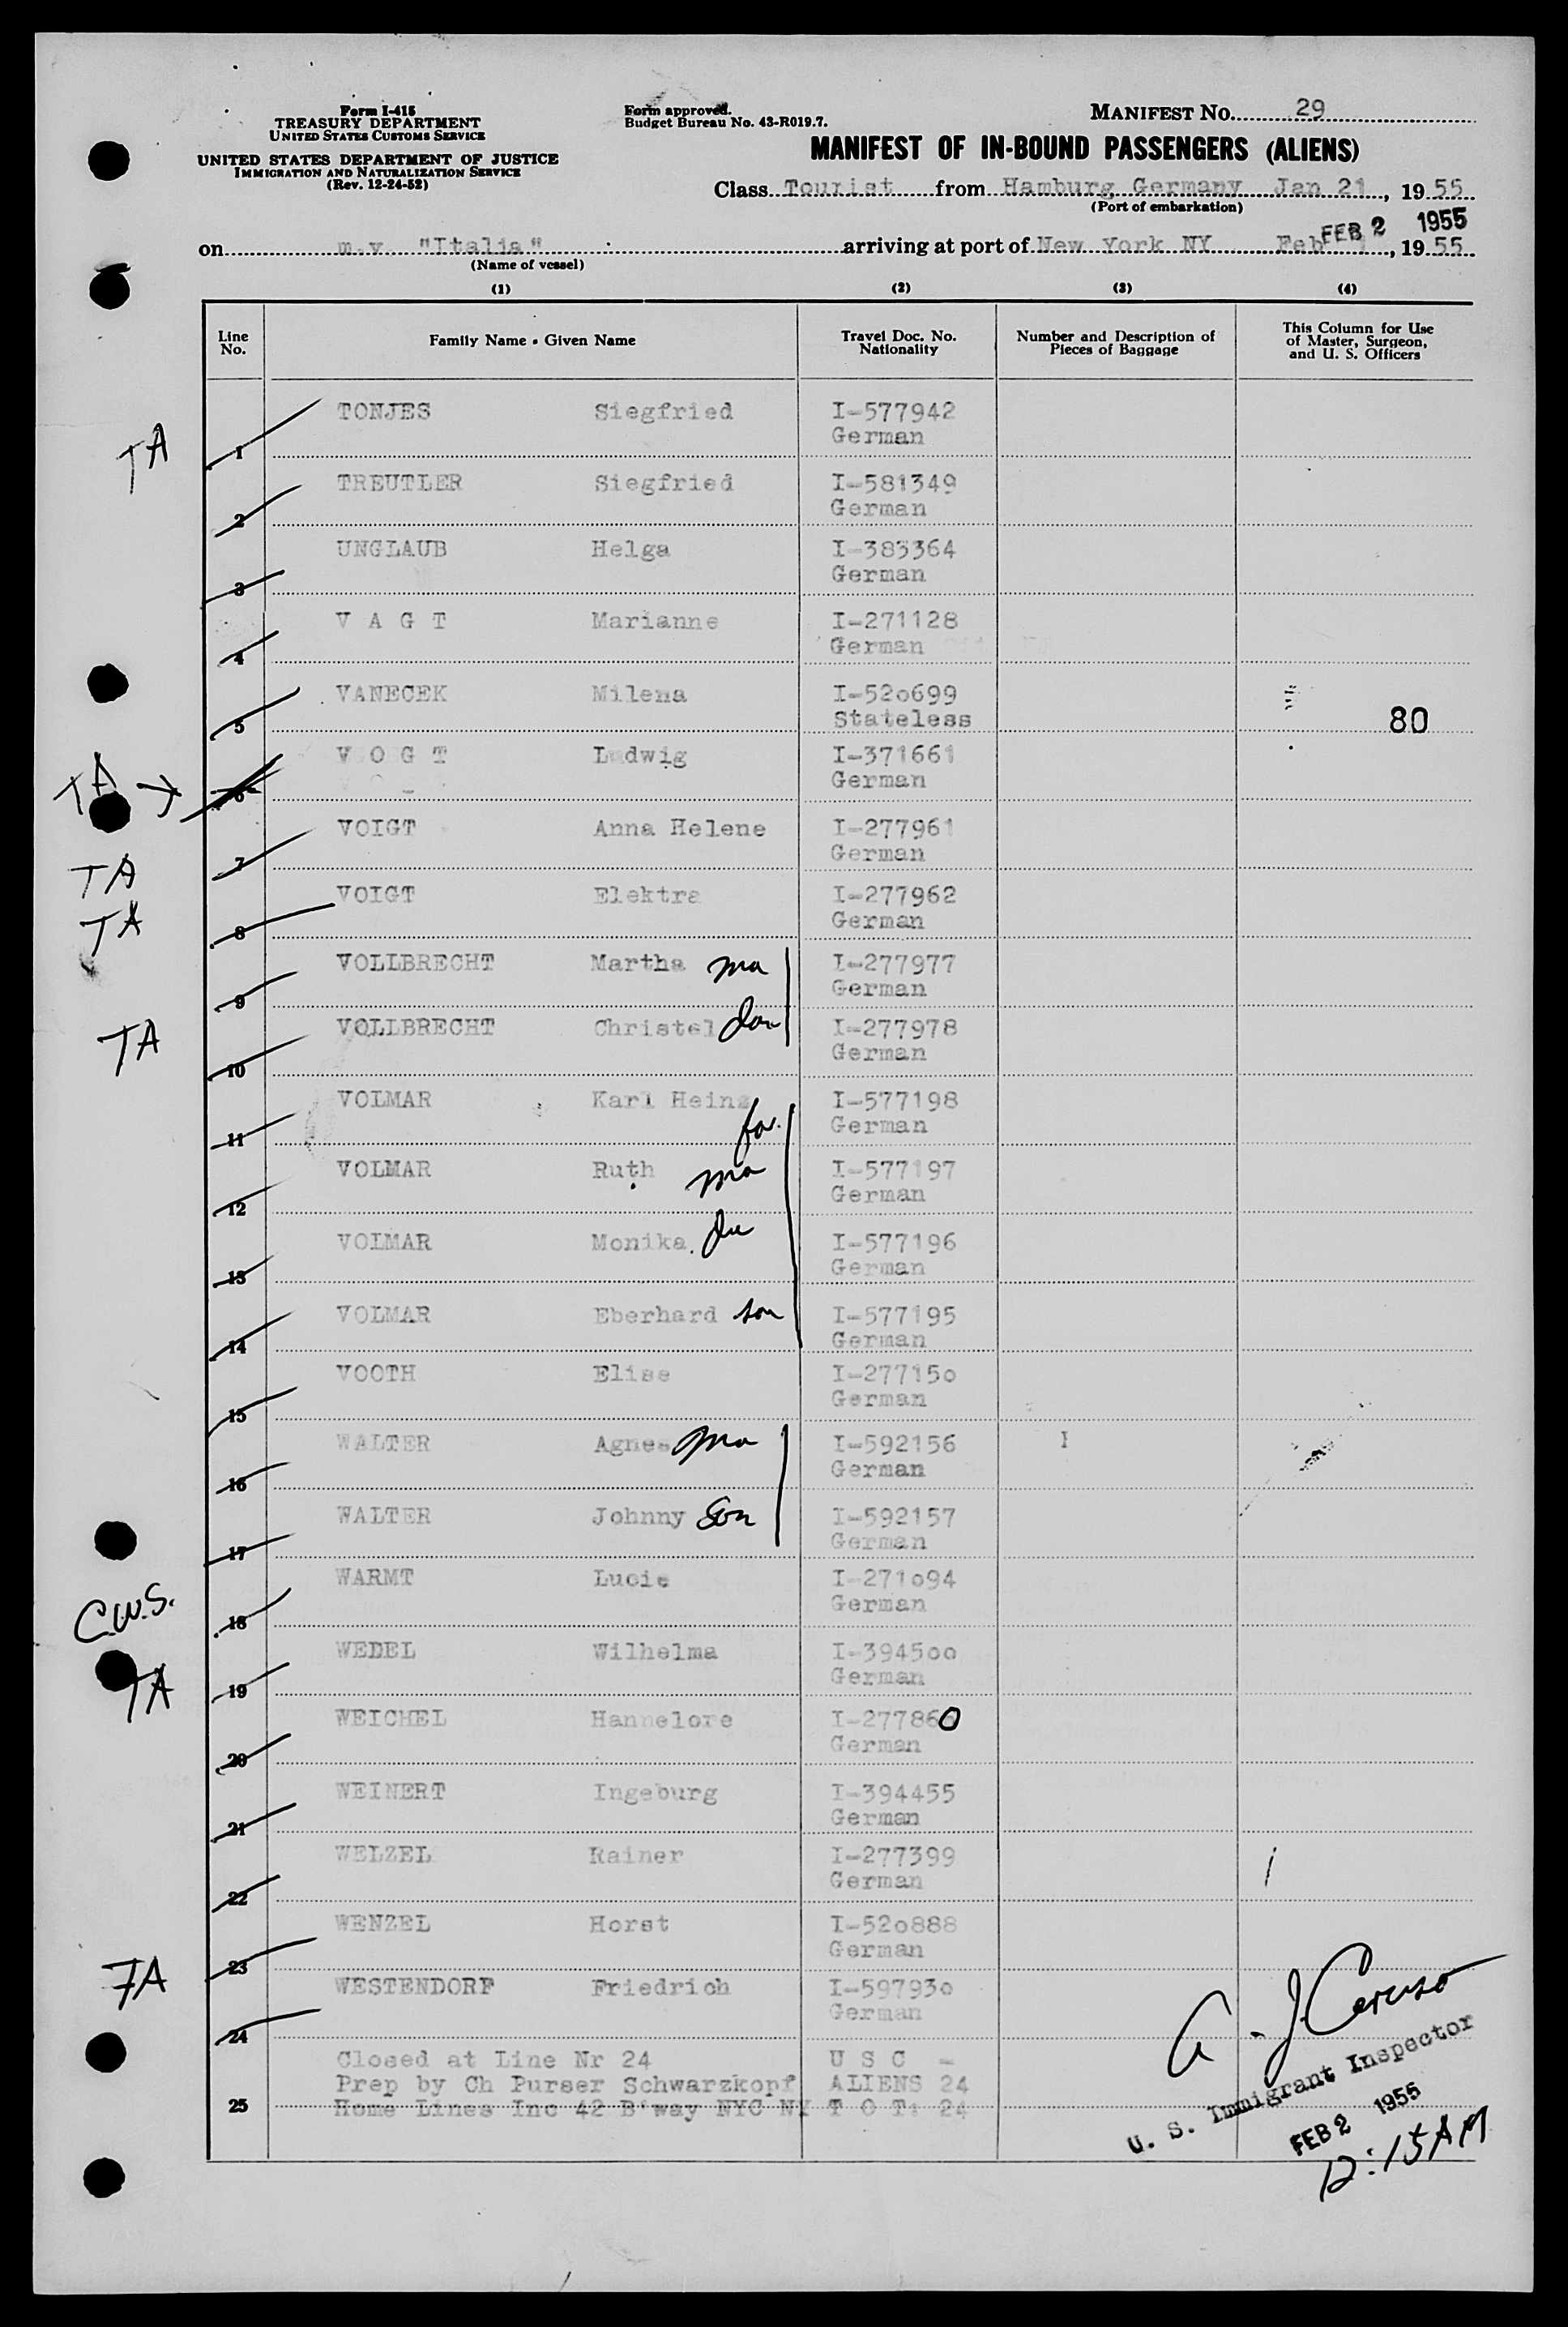 Form I-415
TREASURY DEPARTMENT
UNITED STATES CUSTOMS SERVICE
UNITED STATES DEPARTMENT OF JUSTICE
IMMIGRATION AND NATURALIZATION SERVICE
(Rev. 12-24-52)
Form approved.
Budget Bureau No. 43-R019.7.
MANIFEST NO. 29
MANIFEST OF IN-BOUND PASSENGERS (ALIENS)
Class Tourist from Hamburg Germany Jan 21, 1955
(Port of embarkation)
FEB 2 1955
on m.v. "Italia" arriving at port of New York NY Feb 1, 1955
(Name of vessel)
(1) (2) (3) (4)
Line No. Family Name - Given Name Travel Doc. No. Nationality Number and Description of Pieces of Baggage This Column for Use of Master, Surgeon, and U. S. Officers
TONJES Siegfried I-577942
TA 1 German
TREUTLER Siegfried I-581349
2 German
UNGLAUB Helga I-383364
3 German
V A G T Marianne I-271128
4 German
VANECEK Milena I-520699
5 Stateless 80
V O G T Ludwig I-371661
TA → 6 German
VOIGT Anna Helene I-277961
TA 7 German
VOIGT Elektra I-277962
TA 8 German
VOLLBRECHT Martha ma I-277977
9 German
VOLLBRECHT Christel dau I-277978
TA 10 German
VOLMAR Karl Heinz fa. I-577198
11 German
VOLMAR Ruth ma I-577197
12 German
VOLMAR Monika. da I-577196
13 German
VOLMAR Eberhard son I-577195
14 German
VOOTH Elise I-277150
15 German
WALTER Agnes ma I-592156
16 German
WALTER Johnny Son I-592157
17 German
WARMT Lucie I-271094
C.W.S. 18 German
WEDEL Wilhelma I-394500
TA 19 German
WEICHEL Hannelore I-277860
20 German
WEINERT Ingeburg I-394455
21 German
WELZEL Rainer I-277399
22 German
WENZEL Horst I-520888
23 German
TA WESTENDORF Friedrich I-597930
24 German
Closed at Line Nr 24 U S C -
Prep by Ch Purser Schwarzkopf ALIENS 24
25 Home Lines Inc 42 B'way NYC NY T O T: 24
A. J Caruso
U. S. Immigrant Inspector
FEB 2 1955
12:15AM